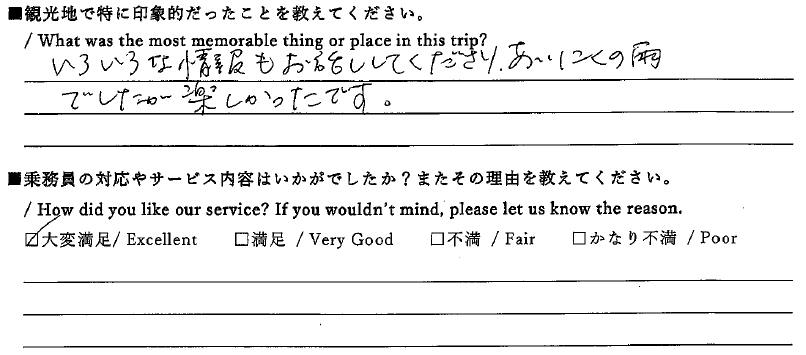 ■観光地で特に印象的だったことを教えてください。
/ What was the most memorable thing or place in this trip?
いろいろな情報もお話ししてくださり、あいにくの雨
でしたが楽しかったです。
■乗務員の対応やサービス内容はいかがでしたか？またその理由を教えてください。
/ How did you like our service? If you wouldn't mind, please let us know the reason.
☑大変満足/ Excellent □満足 / Very Good □不満 / Fair □かなり不満 / Poor